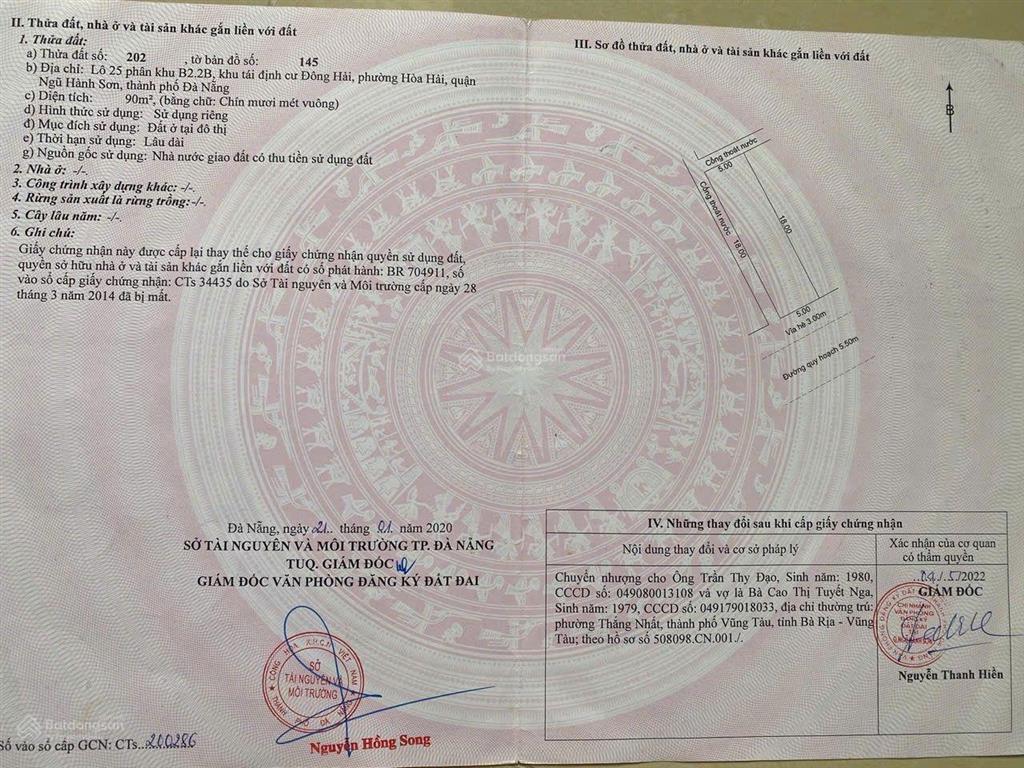 II. Thửa đất, nhà ở và tài sản khác gắn liền với đất
1. Thửa đất:
a) Thửa đất số: 202 , tờ bản đồ số: 145
b) Địa chỉ: Lô 25 phân khu B2.2B, khu tái định cư Đông Hải, phường Hòa Hải, quận
Ngũ Hành Sơn, thành phố Đà Nẵng
c) Diện tích: 90m², (bằng chữ: Chín mươi mét vuông)
d) Hình thức sử dụng: Sử dụng riêng
đ) Mục đích sử dụng: Đất ở tại đô thị
e) Thời hạn sử dụng: Lâu dài
g) Nguồn gốc sử dụng: Nhà nước giao đất có thu tiền sử dụng đất
2. Nhà ở: -/-.
3. Công trình xây dựng khác: -/-.
4. Rừng sản xuất là rừng trồng:-/-.
5. Cây lâu năm: -/-.
6. Ghi chú:
Giấy chứng nhận này được cấp lại thay thế cho giấy chứng nhận quyền sử dụng đất,
quyền sở hữu nhà ở và tài sản khác gắn liền với đất có số phát hành: BR 704911, số
vào sổ cấp giấy chứng nhận: CTs 34435 do Sở Tài nguyên và Môi trường cấp ngày 28
tháng 3 năm 2014 đã bị mất.
Đà Nẵng, ngày 21 tháng 01 năm 2020
SỞ TÀI NGUYÊN VÀ MÔI TRƯỜNG TP. ĐÀ NẴNG
TUQ. GIÁM ĐỐC
GIÁM ĐỐC VĂN PHÒNG ĐĂNG KÝ ĐẤT ĐAI
CỘNG HÒA X.H.C.N VIỆT NAM
SỞ
TÀI NGUYÊN VÀ
MÔI TRƯỜNG
THÀNH PHỐ ĐÀ NẴNG
Nguyễn Hồng Song
Số vào sổ cấp GCN: CTs..200286
III. Sơ đồ thửa đất, nhà ở và tài sản khác gắn liền với đất
B
Cống thoát nước
5.00
Cống thoát nước
18.00
18.00
5.00
Vỉa hè 3.00m
Đường quy hoạch 5.50m
Batdongsan
IV. Những thay đổi sau khi cấp giấy chứng nhận
Nội dung thay đổi và cơ sở pháp lý
Xác nhận của cơ quan
có thẩm quyền
Chuyển nhượng cho Ông Trần Thy Đạo, Sinh năm: 1980,
CCCD số: 049080013108 và vợ là Bà Cao Thị Tuyết Nga,
Sinh năm: 1979, CCCD số: 049179018033, địa chỉ thường trú:
phường Thắng Nhất, thành phố Vũng Tàu, tỉnh Bà Rịa - Vũng
Tàu; theo hồ sơ số 508098.CN.001./.
04/5/2022
GIÁM ĐỐC
CHI NHÁNH
VĂN PHÒNG
ĐĂNG KÝ
ĐẤT ĐAI
Nguyễn Thanh Hiền
Batdongsan